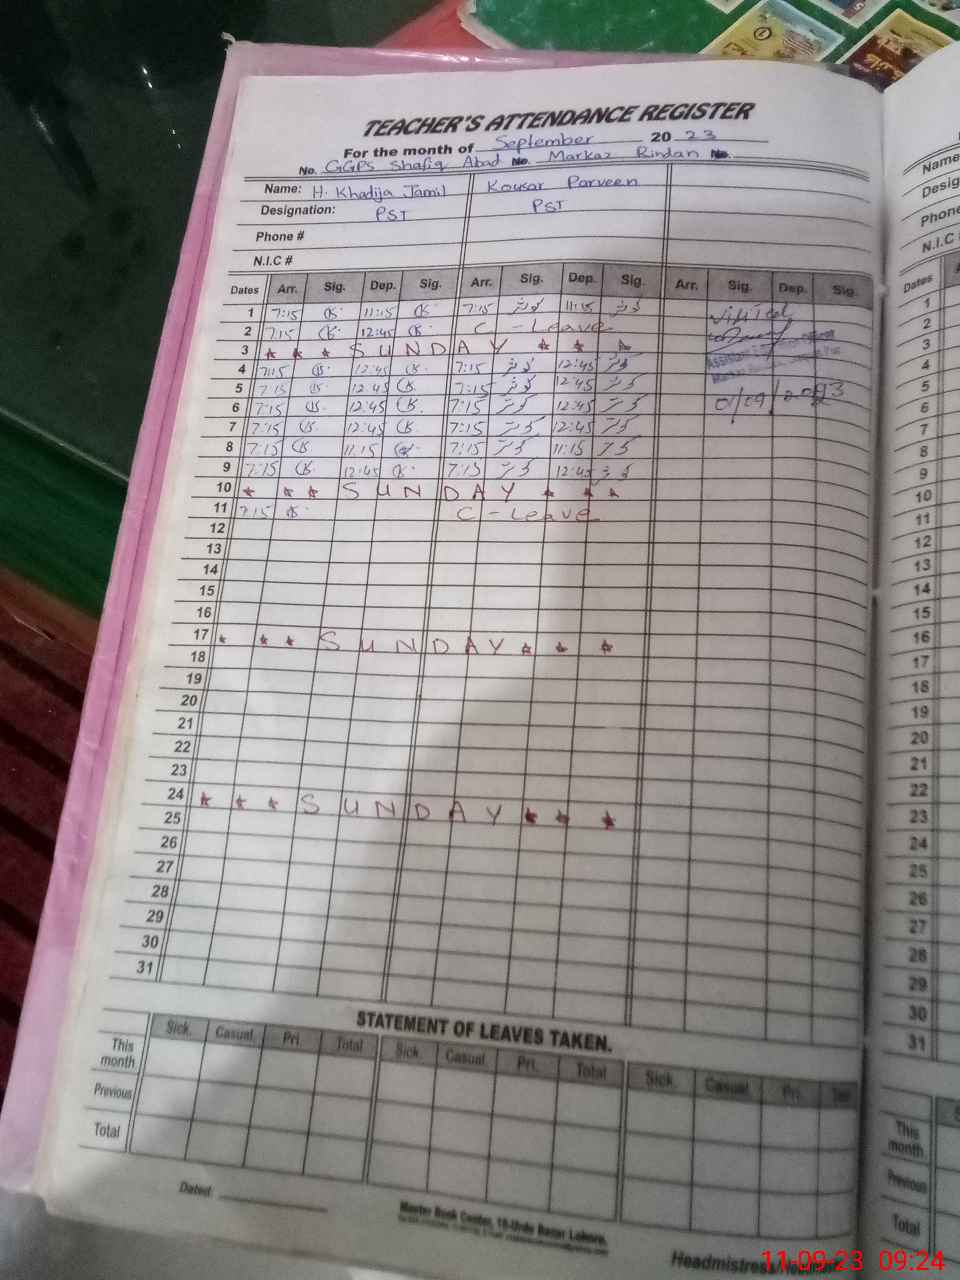 TEACHER'S ATTENDANCE REGISTER
For the month of September 20 23
No. GGPS Shafiq Abad No. Markaz Rindan No.
Name: H. Khadija Jamil Kousar Parveen
Designation: PST PST
Phone #
N.I.C #
Dates Arr. Sig. Dep. Sig. Arr. Sig. Dep. Sig. Arr. Sig. Dep. Sig.
1 7:15 11:15 7:15 کوثر 11:15 کوثر Visited
2 7:15 12:45 C - Leave
3 * * * SUNDAY * * *
4 7:15 12:45 7:15 کوثر 12:45 کوثر
5 7:15 12:45 7:15 کوثر 12:45 کوثر 01/09/2023
6 7:15 12:45 7:15 کوثر 12:45 کوثر
7 7:15 12:45 7:15 کوثر 12:45 کوثر
8 7:15 11:15 7:15 کوثر 11:15 کوثر
9 7:15 12:45 7:15 کوثر 12:45 کوثر
10 * * * SUNDAY * * *
11 7:15 C - Leave
12
13
14
15
16
17 * * * SUNDAY * * *
18
19
20
21
22
23
24 * * * SUNDAY * * *
25
26
27
28
29
30
31
STATEMENT OF LEAVES TAKEN.
Sick. Casual. Pri. Total Sick. Casual. Pri. Total Sick. Casual. Pri.
This month
Previous
Total
Dated
Master Book Center, 18-Urdu Bazar Lahore.
Headmistress/
Name
Desig
Phone
N.I.C
Dates
1
2
3
4
5
6
7
8
9
10
11
12
13
14
15
16
17
18
19
20
21
22
23
24
25
26
27
28
29
30
31
This month
Previous
Total
11-09-23 09:24